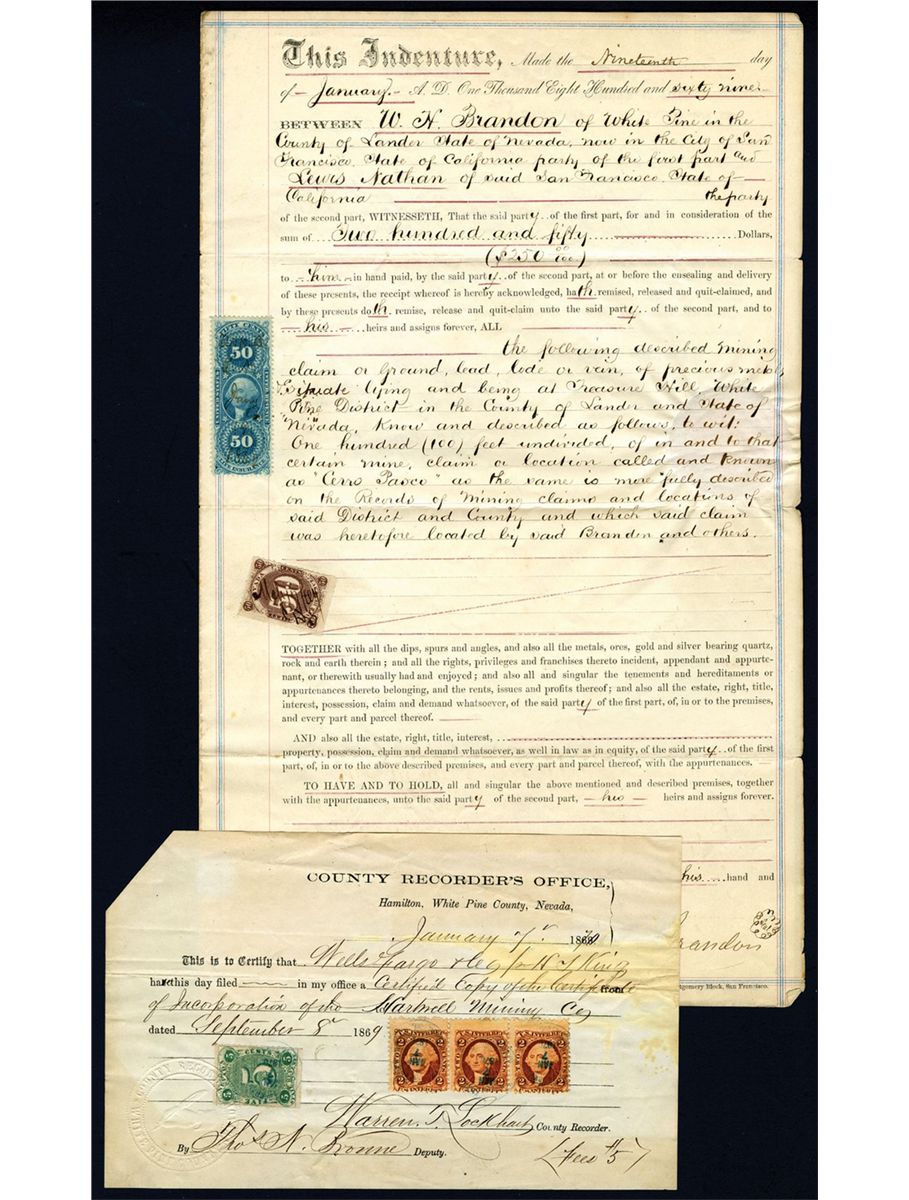 This Indenture, Made the Nineteenth day
of January. A. D. One Thousand Eight Hundred and sixty nine
BETWEEN W. H. Brandon of White Pine in the
County of Lander State of Nevada, now in the City of San
Francisco, State of California party of the first part and
Lewis Nathan of said San Francisco, State of
California the party
of the second part, WITNESSETH, That the said party of the first part, for and in consideration of the
sum of Two hundred and fifty Dollars,
($250
to him in hand paid, by the said party of the second part, at or before the ensealing and delivery
of these presents, the receipt whereof is hereby acknowledged, hath remised, released and quit-claimed, and
by these presents doth remise, release and quit-claim unto the said party of the second part, and to
his heirs and assigns forever, ALL
the following described Mining
claim or Ground, lead, lode or vein, of precious metal
Situate lying and being at Treasure Hill White
Pine District in the County of Lander and State of
Nevada, Know and described as follows, to wit:
One hundred (100) feet undivided, of in and to that
certain mine, claim or location called and known
as "Cerro Pasco" as the same is more fully described
on the Records of Mining claims and locations of
said District and County and which said claim
was heretofore located by said Brandon and others.
50
50
50
TOGETHER with all the dips, spurs and angles, and also all the metals, ores, gold and silver bearing quartz,
rock and earth therein; and all the rights, privileges and franchises thereto incident, appendant and appurte-
nant, or therewith usually had and enjoyed; and also all and singular the tenements and hereditaments or
appurtenances thereto belonging, and the rents, issues and profits thereof; and also all the estate, right, title,
interest, possession, claim and demand whatsoever, of the said party of the first part, of, in or to the premises,
and every part and parcel thereof.
AND also all the estate, right, title, interest,
property, possession, claim and demand whatsoever, as well in law as in equity, of the said party of the first
part, of, in or to the above described premises, and every part and parcel thereof, with the appurtenances.
TO HAVE AND TO HOLD, all and singular the above mentioned and described premises, together
with the appurtenances, unto the said party of the second part, his heirs and assigns forever.
his hand and
Brandon
Montgomery Block, San Francisco.
COUNTY RECORDER'S OFFICE,
Hamilton, White Pine County, Nevada,
January 7 18670
This is to Certify that Wells Fargo & Co for H J King
has this day filed in my office a Certified Copy of the Certificate from
of Incorporation of the Hartwell Mining Co
dated September 8 1869
5 CENTS 5
5 5
2 2 2 2 2 2
Warren T. Lockhart County Recorder.
By Thos N. Bronne Deputy. Fees $5